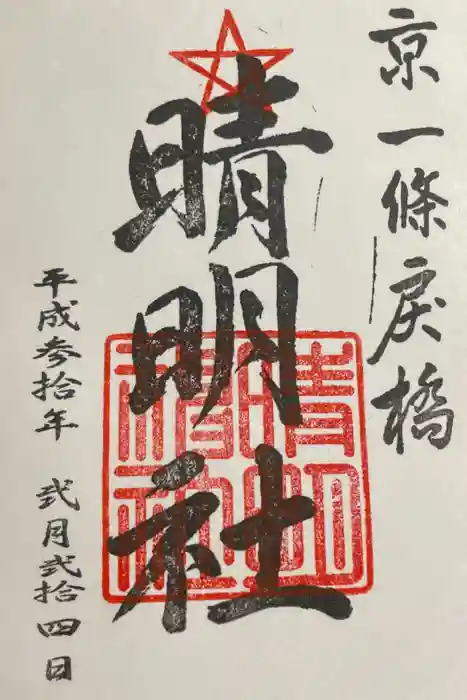 京一條戻橋
晴明社
晴明神社
平成参拾年 弐月弐拾四日